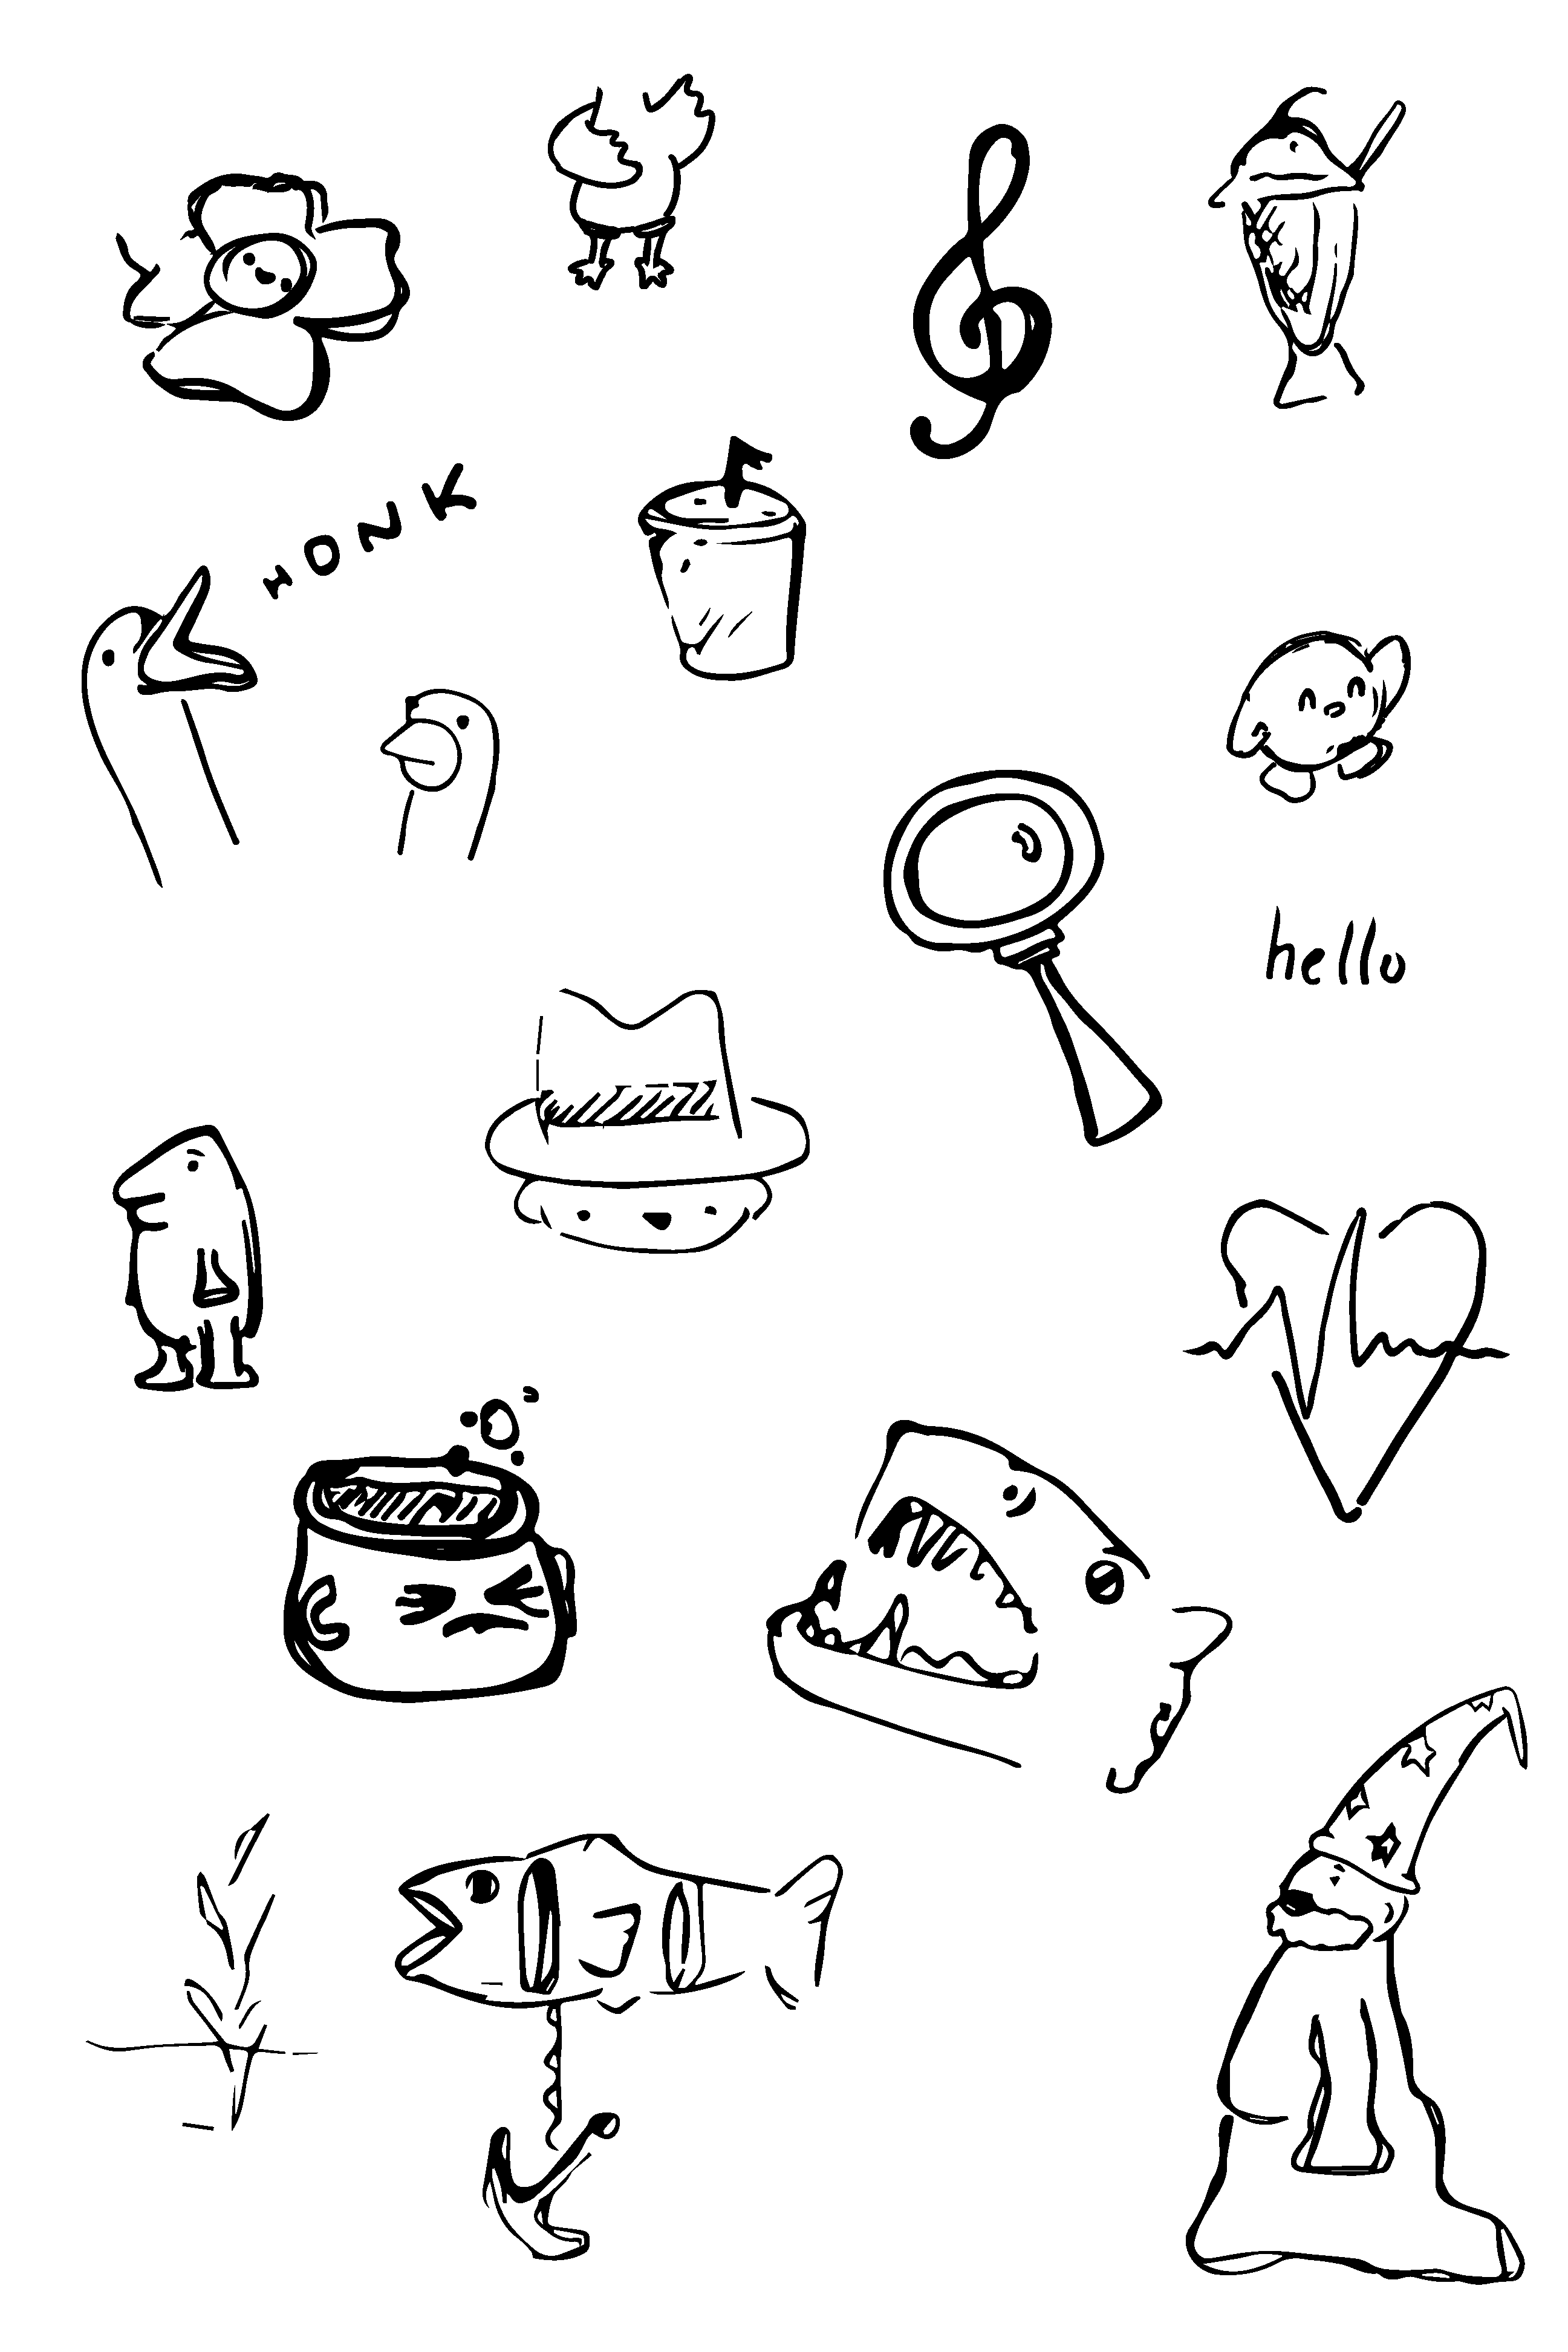 HONK
hello